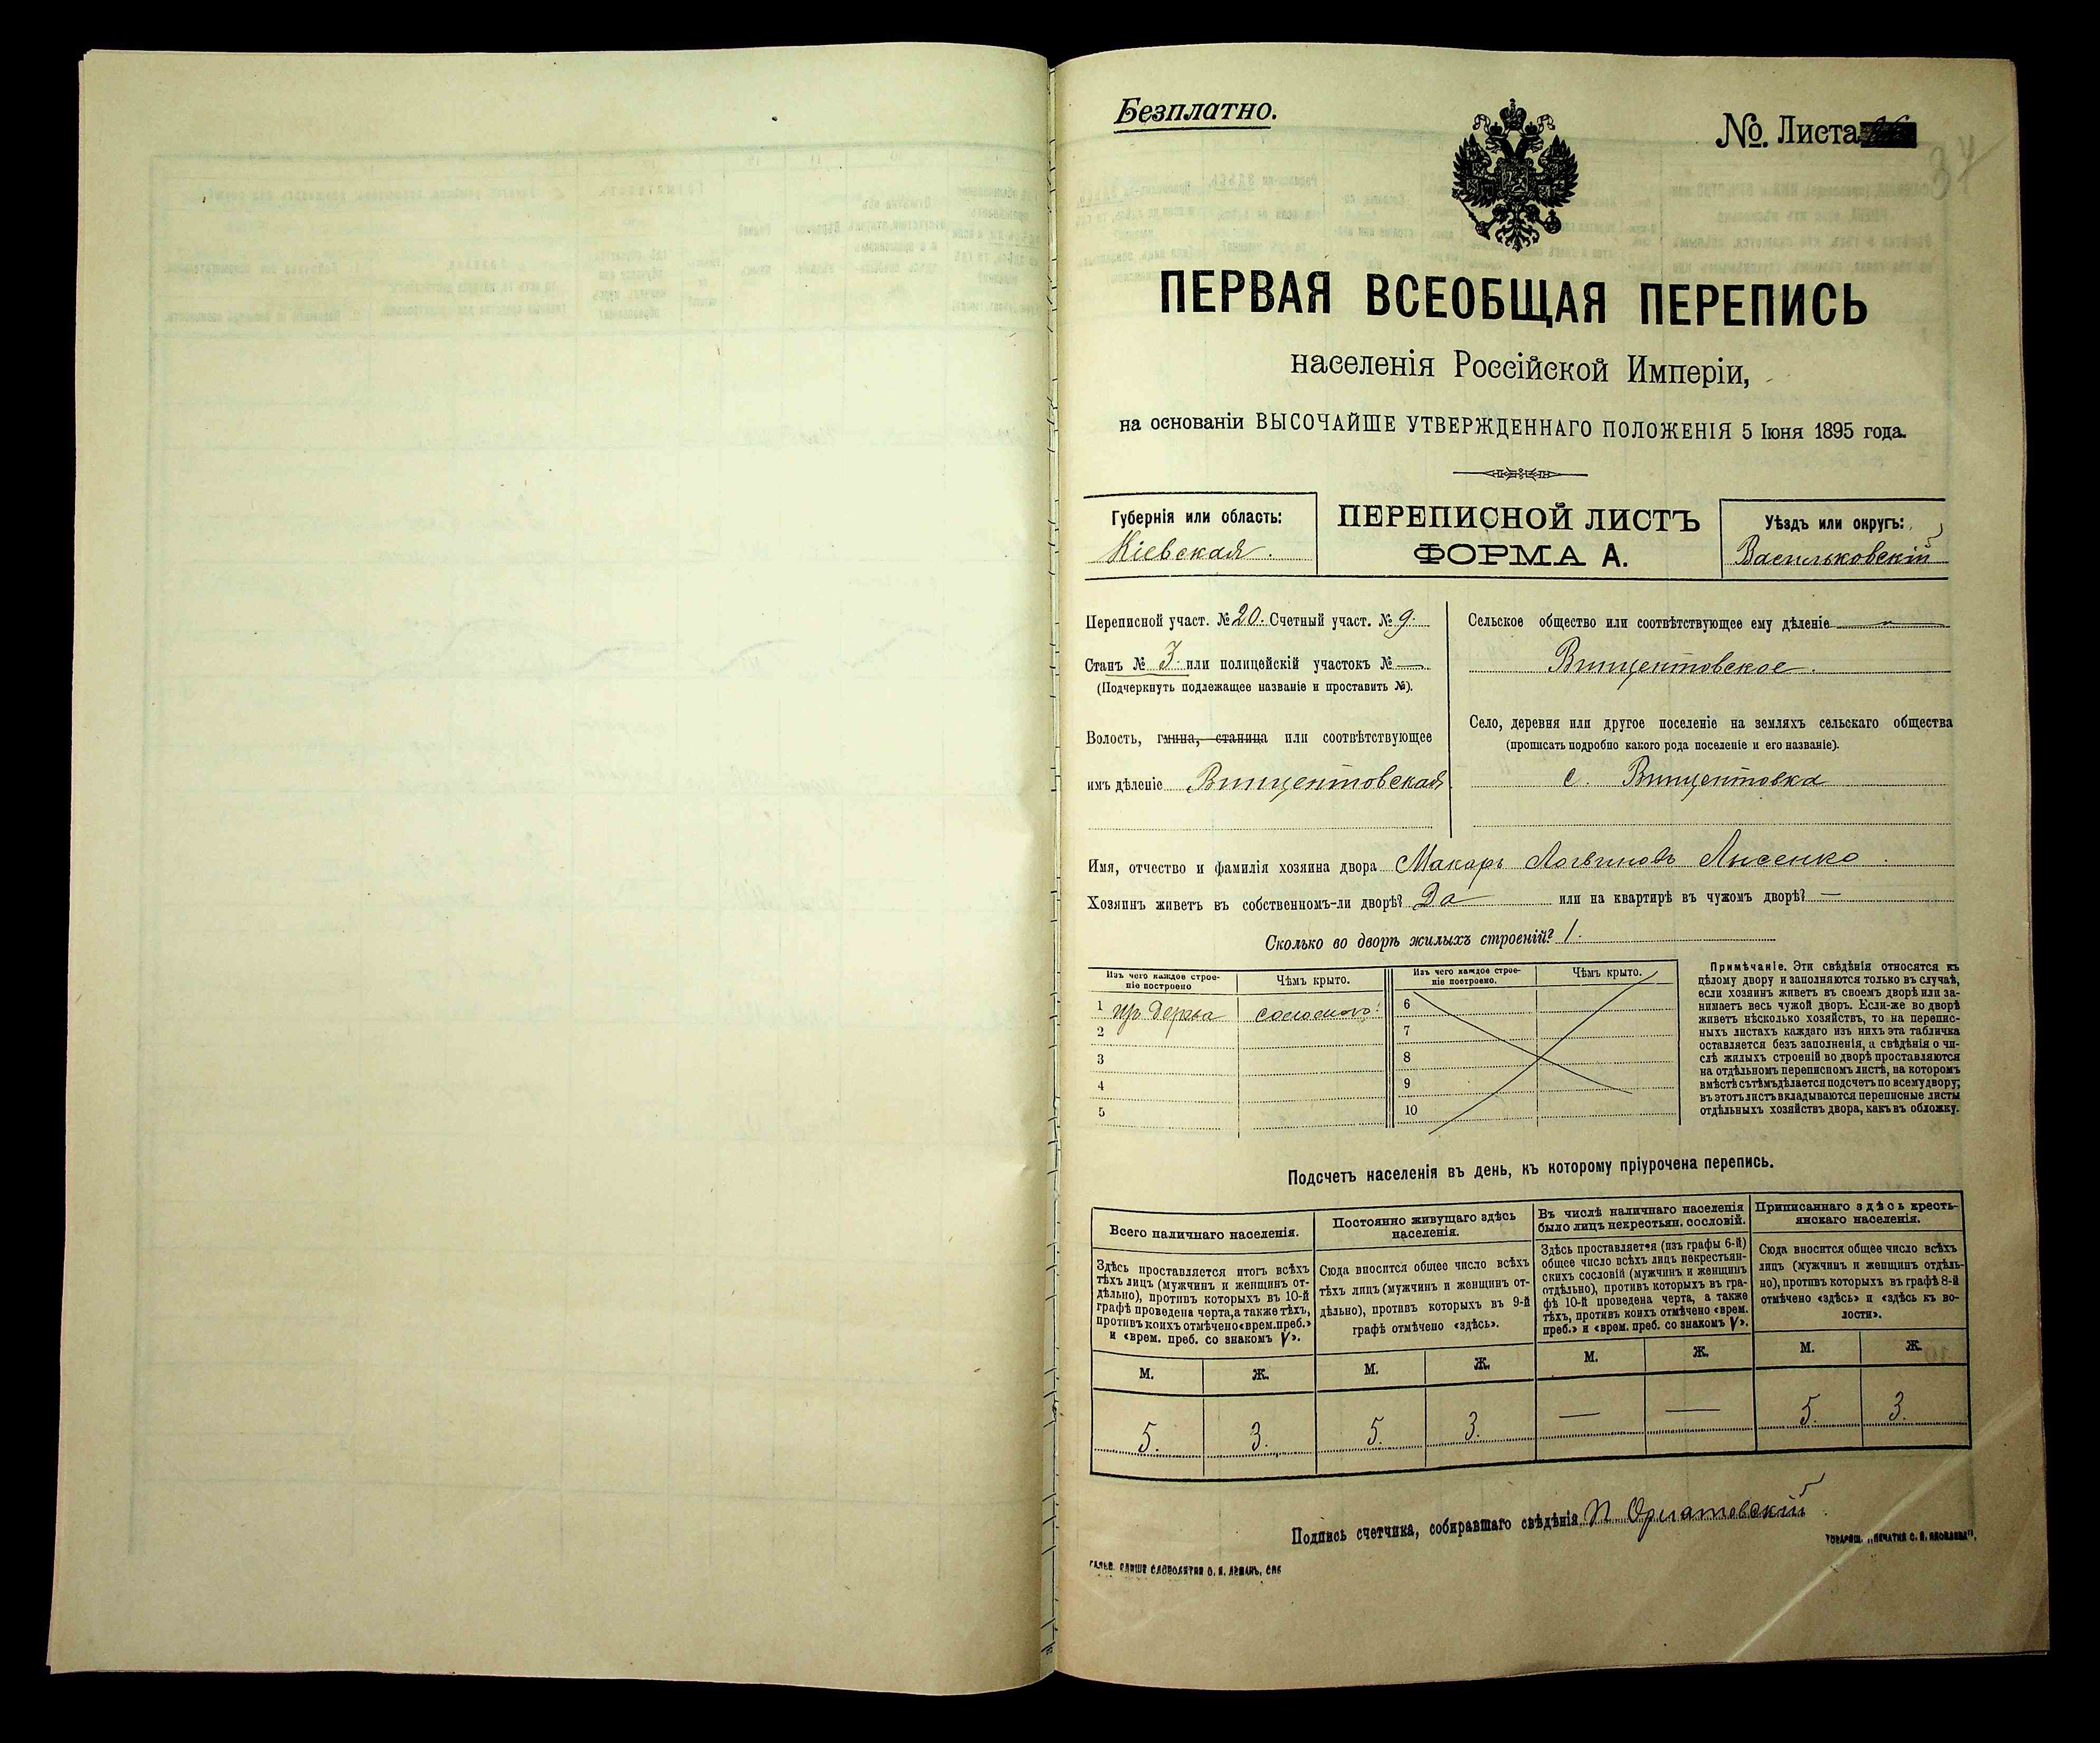 Безплатно.
№. Листа
34
ПЕРВАЯ ВСЕОБЩАЯ ПЕРЕПИСЬ
населенія Россійской Имперіи,
на основаніи ВЫСОЧАЙШЕ УТВЕРЖДЕННАГО ПОЛОЖЕНІЯ 5 Іюня 1895 года.
Губернія или область:
Кіевская.
ПЕРЕПИСНОЙ ЛИСТЪ
ФОРМА А.
Уѣздъ или округъ:
Васильковскій
Переписной участ. № 20. Счетный участ. № 9.
Станъ № 3. или полицейскій участокъ № —
(Подчеркнуть подлежащее названіе и проставить №).
Волость, гмина, станица или соотвѣтствующее
имъ дѣленіе Винцентовская
Сельское общество или соотвѣтствующее ему дѣленіе
Винцентовское.
Село, деревня или другое поселеніе на земляхъ сельскаго общества
(прописать подробно какого рода поселеніе и его названіе).
с. Винцентовка
Имя, отчество и фамилія хозяина двора Макаръ Логвиновъ Лисенко.
Хозяинъ живетъ въ собственномъ-ли дворѣ? Да или на квартирѣ въ чужомъ дворѣ? —
Сколько во дворѣ жилыхъ строеній? 1.
Изъ чего каждое строе-
ніе построено
Чѣмъ крыто.
Изъ чего каждое строе-
ніе построено.
Чѣмъ крыто.
1 изъ дерева соломою
2
3
4
5
6
7
8
9
10
Примѣчаніе. Эти свѣдѣнія относятся къ
цѣлому двору и заполняются только въ случаѣ,
если хозяинъ живетъ въ своемъ дворѣ или за-
нимаетъ весь чужой дворъ. Если-же во дворѣ
живетъ нѣсколько хозяйствъ, то на перепис-
ныхъ листахъ каждаго изъ нихъ эта табличка
оставляется безъ заполненія, а свѣдѣнія о чи-
слѣ жилыхъ строеній во дворѣ проставляются
на отдѣльномъ переписномъ листѣ, на которомъ
вмѣстѣ съ тѣмъ дѣлается подсчетъ по всему двору;
въ этотъ листъ вкладываются переписные листы
отдѣльныхъ хозяйствъ двора, какъ въ обложку.
Подсчетъ населенія въ день, къ которому пріурочена перепись.
Всего наличнаго населенія.
Здѣсь проставляется итогъ всѣхъ
тѣхъ лицъ (мужчинъ и женщинъ от-
дѣльно), противъ которыхъ въ 10-й
графѣ проведена черта, а также тѣхъ,
противъ коихъ отмѣчено «врем. преб.»
и «врем. преб. со знакомъ V».
Постоянно живущаго здѣсь
населенія.
Сюда вносится общее число всѣхъ
тѣхъ лицъ (мужчинъ и женщинъ от-
дѣльно), противъ которыхъ въ 9-й
графѣ отмѣчено «здѣсь».
Въ числѣ наличнаго населенія
было лицъ некрестьян. сословій.
Здѣсь проставляется (изъ графы 6-й)
общее число всѣхъ лицъ некрестьян-
скихъ сословій (мужчинъ и женщинъ
отдѣльно), противъ которыхъ въ гра-
фѣ 10-й проведена черта, а также
тѣхъ, противъ коихъ отмѣчено «врем.
преб.» и «врем. преб. со знакомъ V».
Приписаннаго здѣсь кресть-
янскаго населенія.
Сюда вносится общее число всѣхъ
лицъ (мужчинъ и женщинъ отдѣль-
но), противъ которыхъ въ графѣ 8-й
отмѣчено «здѣсь» и «здѣсь къ во-
лости».
М. Ж. М. Ж. М. Ж. М. Ж.
5. 3. 5. 3. — — 5. 3.
Подпись счетчика, собиравшаго свѣдѣнія П. Орнатовскій
ТОВАРИЩ. „ПЕЧАТНЯ С. П. ЯКОВЛЕВА".
ГАЛЬВ. КЛИШЕ СЛОВОЛИТНИ О. И. ЛЕМАНЪ, СПБ